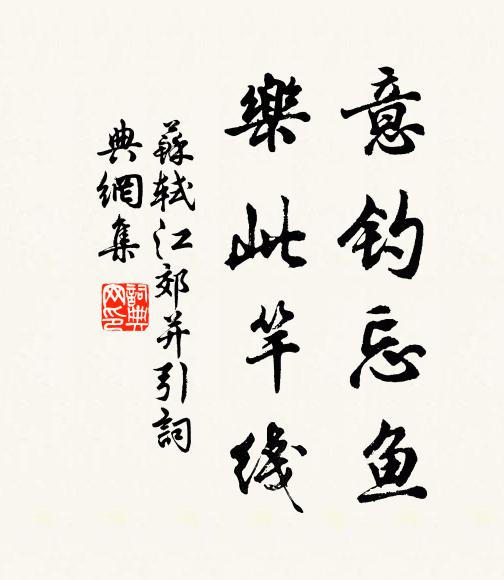 意钓忘鱼
樂此竿綫
蘇軾江郊并引詞
典網集
詞典
网印